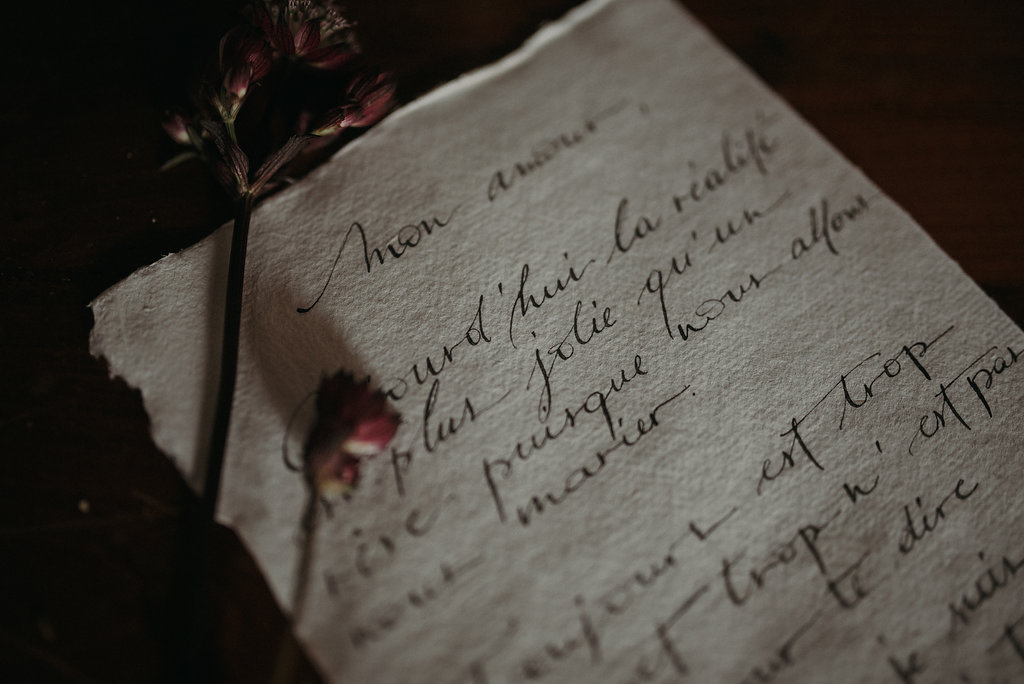 Mon amour,
jourd'hui la réalité
plus jolie qu'un
rêve puisque nous allons
nous marier.
toujours est trop
et trop n'est pas
te dire
je suis